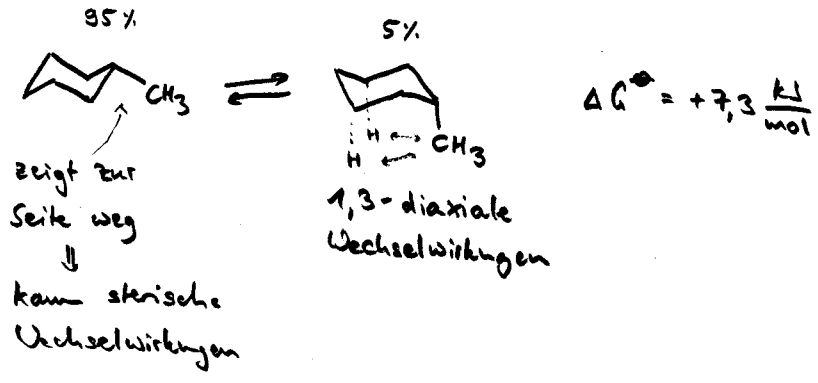 95%
5%
CH3
H
H
CH3
ΔG° = +7,3 kJ/mol
zeigt zur
Seite weg
⇓
kaum sterische
Wechselwirkungen
1,3-diaxiale
Wechselwirkungen